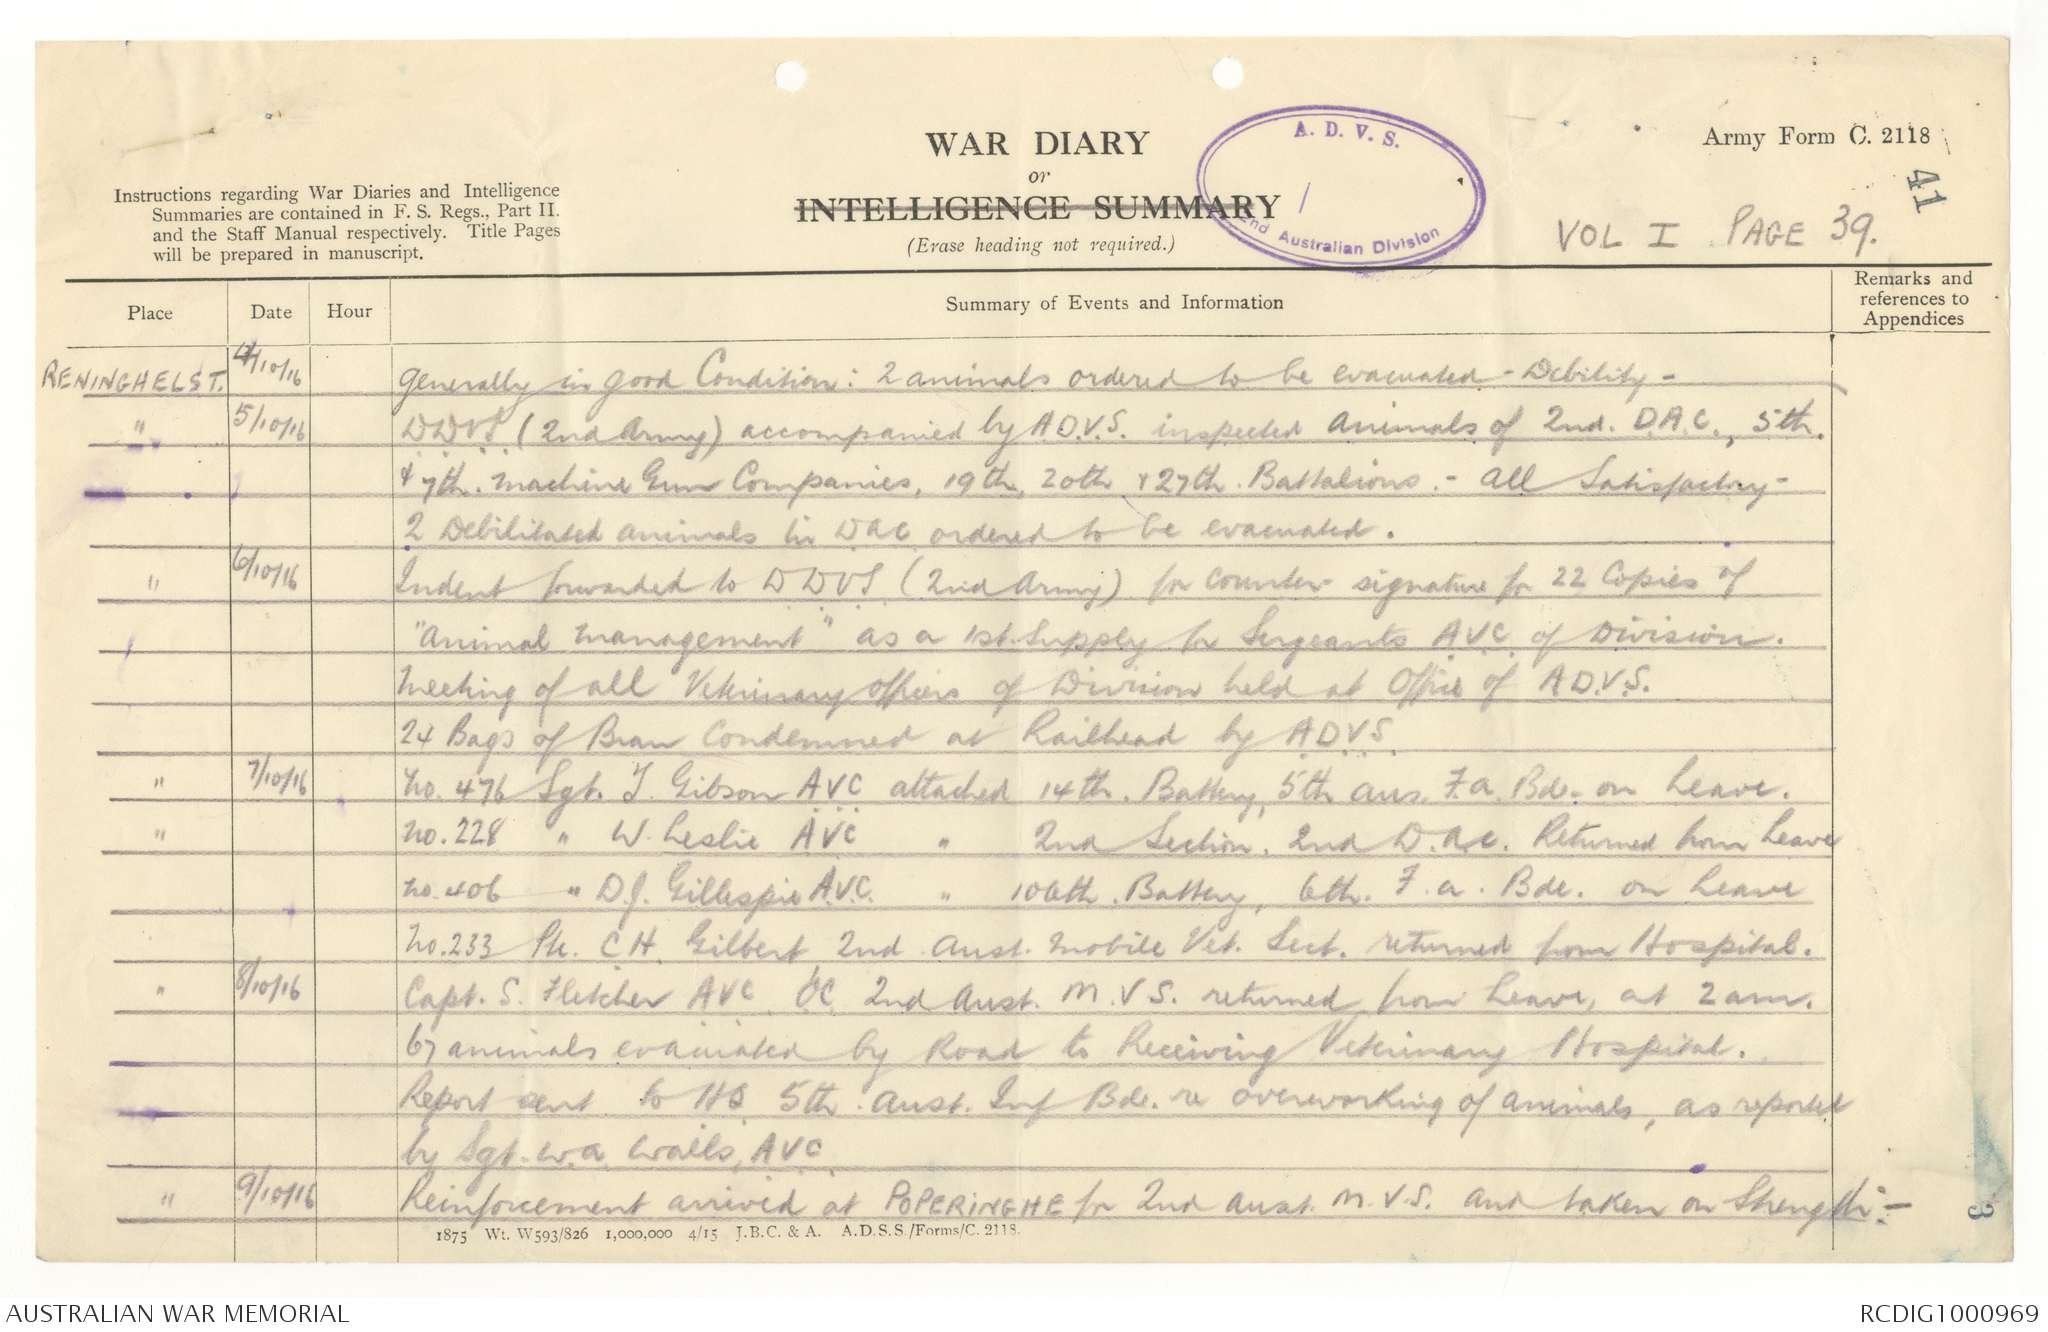 WAR DIARY
or
INTELLIGENCE SUMMARY
(Erase heading not required.)
Army Form C. 2118
41
Instructions regarding War Diaries and Intelligence
Summaries are contained in F. S. Regs., Part II.
and the Staff Manual respectively. Title Pages
will be prepared in manuscript.
A. D. V. S.
2nd Australian Division
VOL I PAGE 39.
Place Date Hour Summary of Events and Information Remarks and references to Appendices
RENINGHELST. 4/10/16 generally in good Condition: 2 animals ordered to be evacuated - Debility -
" 5/10/16 DDVS (2nd Army) accompanied by ADVS. inspected animals of 2nd. D.A.C., 5th.
& 7th. Machine Gun Companies, 19th, 20th & 27th. Battalions. - All Satisfactory -
2 Debilitated animals in DAC ordered to be evacuated.
" 6/10/16 Indent forwarded to DDVS (2nd Army) for counter-signature for 22 Copies of
"Animal Management" as a 1st. Supply for Sergeants AVC of Division.
Meeting of all Veterinary Officers of Division held at Office of ADVS.
24 Bags of Bran Condemned at Railhead by ADVS
" 7/10/16 No. 476 Sgt. T. Gibson AVC attached 14th. Battery, 5th Aus. F.A. Bde. on Leave.
" No. 228 " W. Leslie AVC " 2nd Section. 2nd D.A.C. Returned from Leave
No. 406 " D.J. Gillespie A.V.C. " 106th. Battery, 6th. F. A. Bde. on Leave
No. 233 Pte. C H. Gilbert 2nd Aust. Mobile Vet. Sect. returned from Hospital.
" 8/10/16 Capt. S. Fletcher AVC OC 2nd Aust. M.V.S. returned from Leave, at 2 am.
67 animals evacuated by Road to Receiving Veterinary Hospital.
Report sent to HQ 5th. Aust. Inf Bde. re overworking of animals, as reported
by Sgt. W.A. Walls, AVC
" 9/10/16 Reinforcement arrived at POPERINGHE for 2nd Aust. M.V.S. and taken on Strength: -
1875 Wt. W593/826 1,000,000 4/15 J.B.C. & A. A.D.S.S./Forms/C. 2118.
3
AUSTRALIAN WAR MEMORIAL
RCDIG1000969